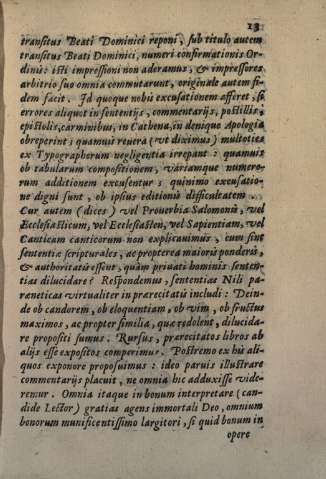 13
transitus Beati Dominici reponi, sub titulo autem
transitus Beati Dominici, numeri confirmationis Or-
dinis: isti impressioni non aderamus, & impressores
arbitrio suo omnia commutarunt, originale autem fi-
dem facit. Id quoque nobis excusationem afferet, si
errores aliquot in sententijs, commentarijs, postillis,
epistolis, carminibus, in Cathena, in denique Apologia
obreperint; quamuis reuera (vt diximus) multoties
ex Typographorum negligentia irrepant: quamuis
ob tabularum compositionem, variamque numero-
rum additionem excusentur; quinimo excusatio-
ne digni sunt, ob ipsius editionis difficultatem.
Cur autem (dices) vel Prouerbia Salomonis, vel
Ecclesiasticum, vel Ecclesiasten, vel Sapientiam, vel
Canticum canticorum non explicauimus, cum sint
sententiæ scripturales, ac propterea maioris ponderis,
& authoritatis essent, quàm priuati hominis senten-
tias dilucidare? Respondemus, sententias Nili pa-
raneticas virtualiter in præcitatis includi: Dein-
de ob candorem, ob eloquentiam, ob vim, ob fructus
maximos, ac propter similia, quæ redolent, dilucida-
re propositi sumus. Rursus, præcitatos libros ab
alijs esse expositos comperimus. Postremo ex his ali-
quos exponere proposuimus: ideo paruis illustrare
commentarijs placuit, ne omnia hic adduxisse vide-
remur. Omnia itaque in bonum interpretare (can-
dide Lector) gratias agens immortali Deo, omnium
bonorum munificentissimo largitori, si quid bonum in
opere